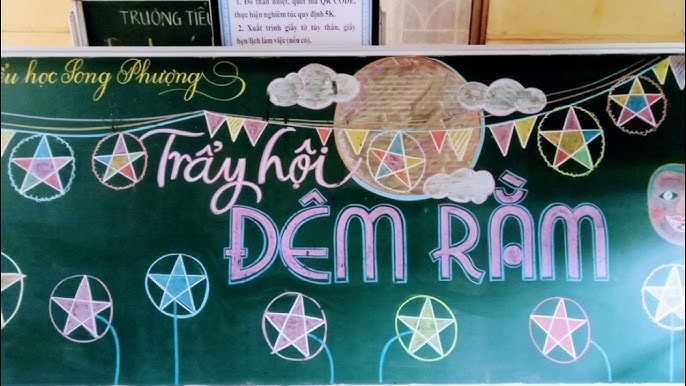 TRƯỜNG TIỂU
1. Đo thân nhiệt, quét mã QR CODE,
thực hiện nghiêm túc quy định 5K.
2. Xuất trình giấy tờ tùy thân, giấy
hẹn/lịch làm việc (nếu có).
ểu học Song Phượng
Trẩy hội
ĐÊM RẰM